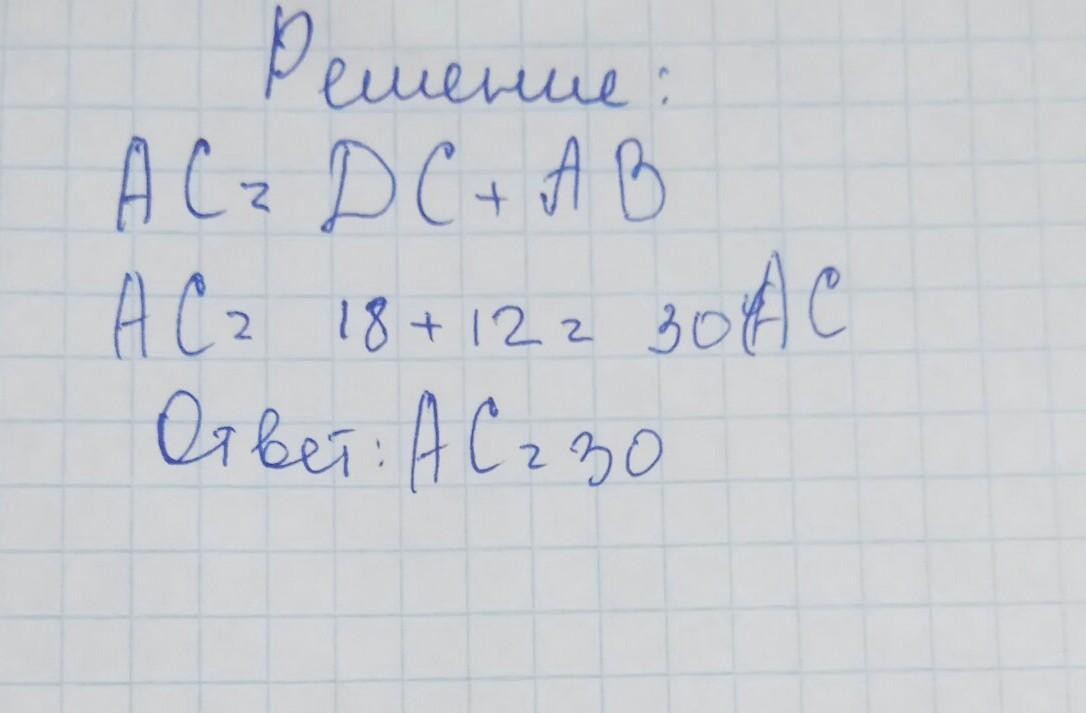 Решение:
AC = DC + AB
AC = 18 + 12 = 30 AC
Ответ: AC = 30